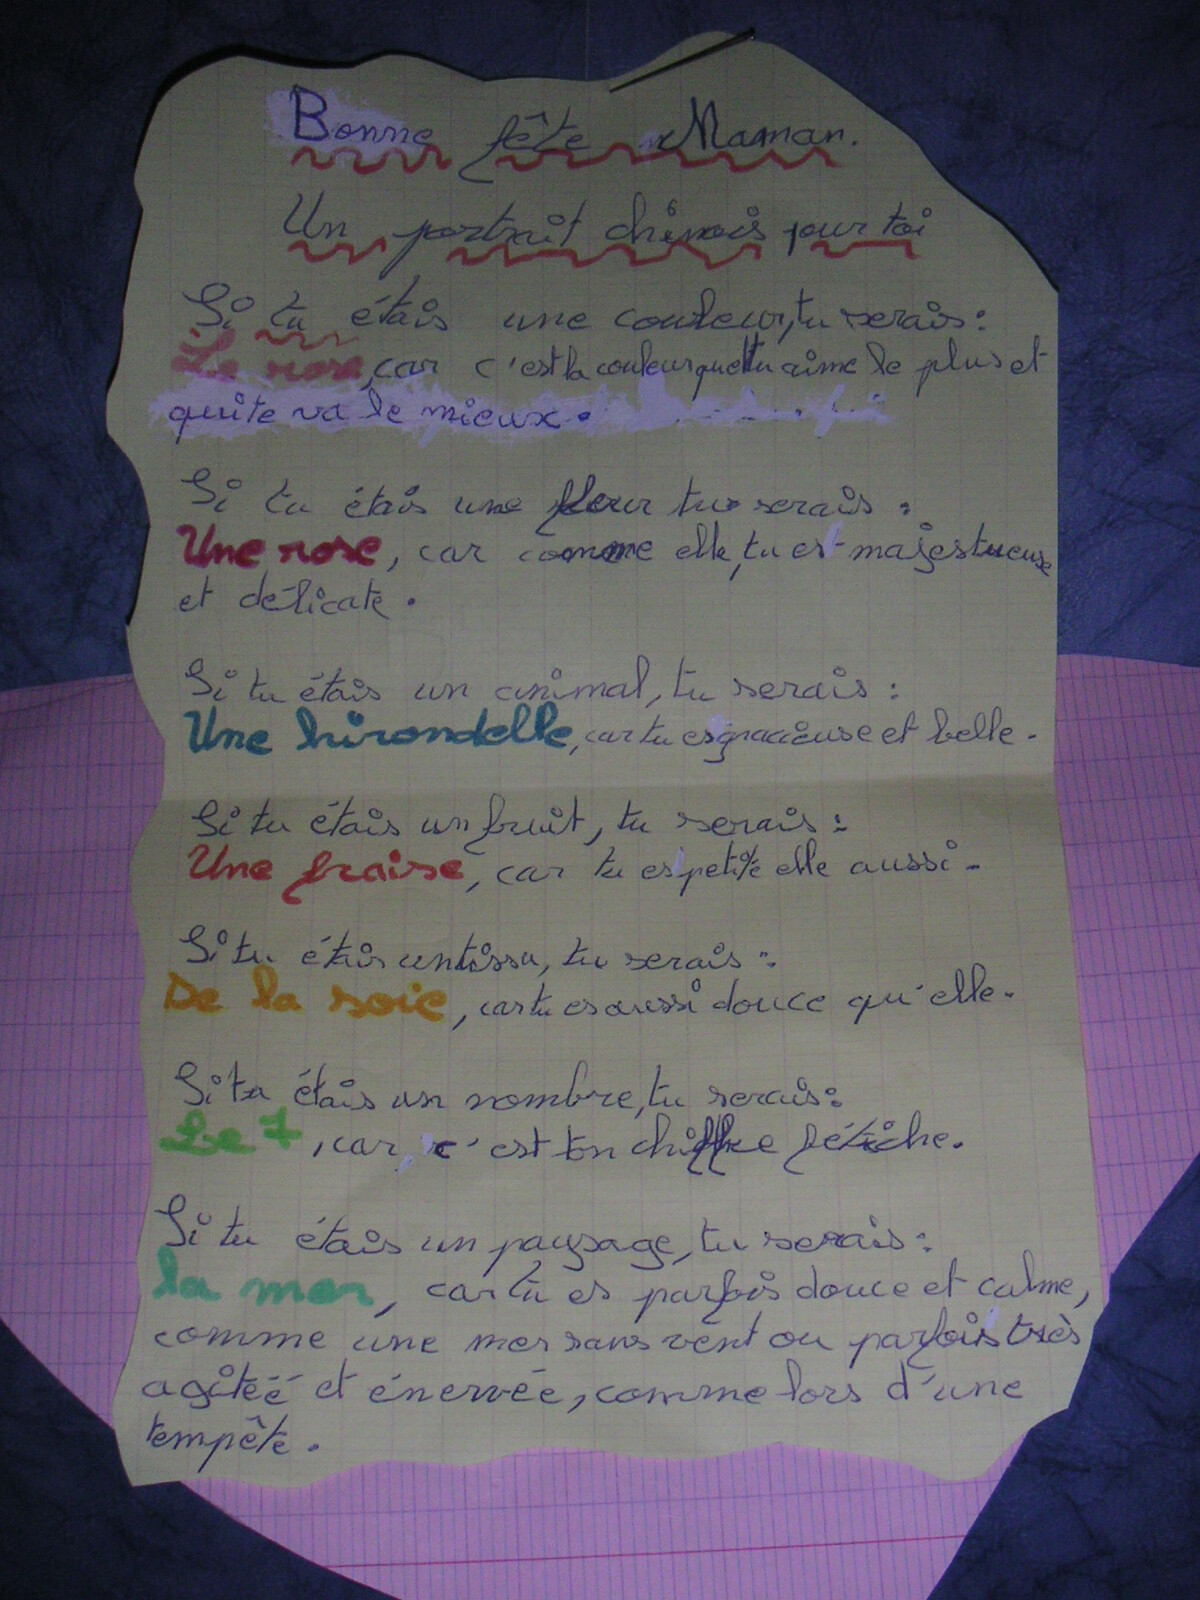 Bonne fête Maman.
Un portrait chinois pour toi
Si tu étais une couleur, tu serais:
Le rose, car c'est la couleur que tu aime le plus et
qui te va le mieux.
Si tu étais une fleur tu serais:
Une rose, car comme elle, tu es majestueuse
et délicate.
Si tu étais un animal, tu serais:
Une hirondelle, car tu es gracieuse et belle.
Si tu étais un fruit, tu serais:
Une fraise, car tu es petite elle aussi.
Si tu étais un tissu, tu serais:
De la soie, car tu es aussi douce qu'elle.
Si tu étais un nombre, tu serais:
Le 7, car, c'est ton chiffre fétiche.
Si tu étais un paysage, tu serais:
la mer, car tu es parfois douce et calme,
comme une mer sans vent ou parfois très
agiteé et énervée, comme lors d'une
tempête.